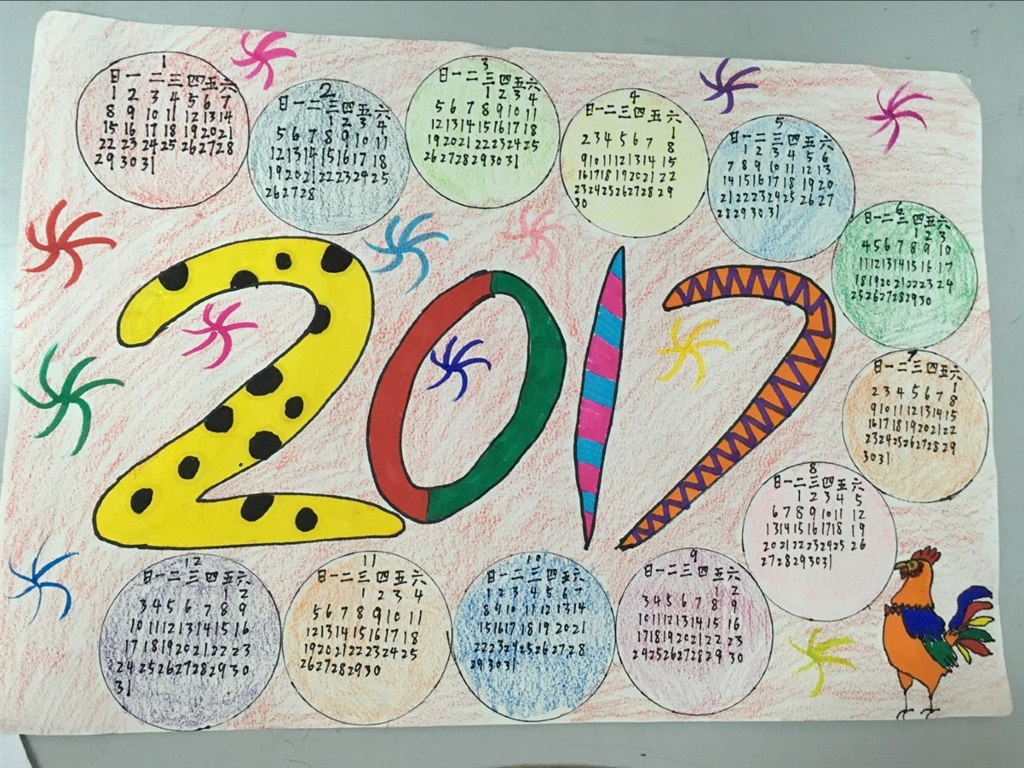 1
日一二三四五六
1 2 3 4 5 6 7
8 9 10 11 12 13 14
15 16 17 18 19 20 21
22 23 24 25 26 27 28
29 30 31
2
日一二三四五六
1 2 3 4
5 6 7 8 9 10 11
12 13 14 15 16 17 18
19 20 21 22 23 24 25
26 27 28
3
日一二三四五六
1 2 3 4
5 6 7 8 9 10 11
12 13 14 15 16 17 18
19 20 21 22 23 24 25
26 27 28 29 30 31
4
日一二三四五六
1
2 3 4 5 6 7 8
9 10 11 12 13 14 15
16 17 18 19 20 21 22
23 24 25 26 27 28 29
30
5
日一二三四五六
1 2 3 4 5 6
7 8 9 10 11 12 13
14 15 16 17 18 19 20
21 22 23 24 25 26 27
28 29 30 31
6
日一二三四五六
1 2 3
4 5 6 7 8 9 10
11 12 13 14 15 16 17
18 19 20 21 22 23 24
25 26 27 28 29 30
2017
7
日一二三四五六
1
2 3 4 5 6 7 8
9 10 11 12 13 14 15
16 17 18 19 20 21 22
23 24 25 26 27 28 29
30 31
8
日一二三四五六
1 2 3 4 5
6 7 8 9 10 11 12
13 14 15 16 17 18 19
20 21 22 23 24 25 26
27 28 29 30 31
9
日一二三四五六
1 2
3 4 5 6 7 8 9
10 11 12 13 14 15 16
17 18 19 20 21 22 23
24 25 26 27 28 29 30
10
日一二三四五六
1 2 3 4 5 6 7
8 9 10 11 12 13 14
15 16 17 18 19 20 21
22 23 24 25 26 27 28
29 30 31
11
日一二三四五六
1 2 3 4
5 6 7 8 9 10 11
12 13 14 15 16 17 18
19 20 21 22 23 24 25
26 27 28 29 30
12
日一二三四五六
1 2
3 4 5 6 7 8 9
10 11 12 13 14 15 16
17 18 19 20 21 22 23
24 25 26 27 28 29 30
31